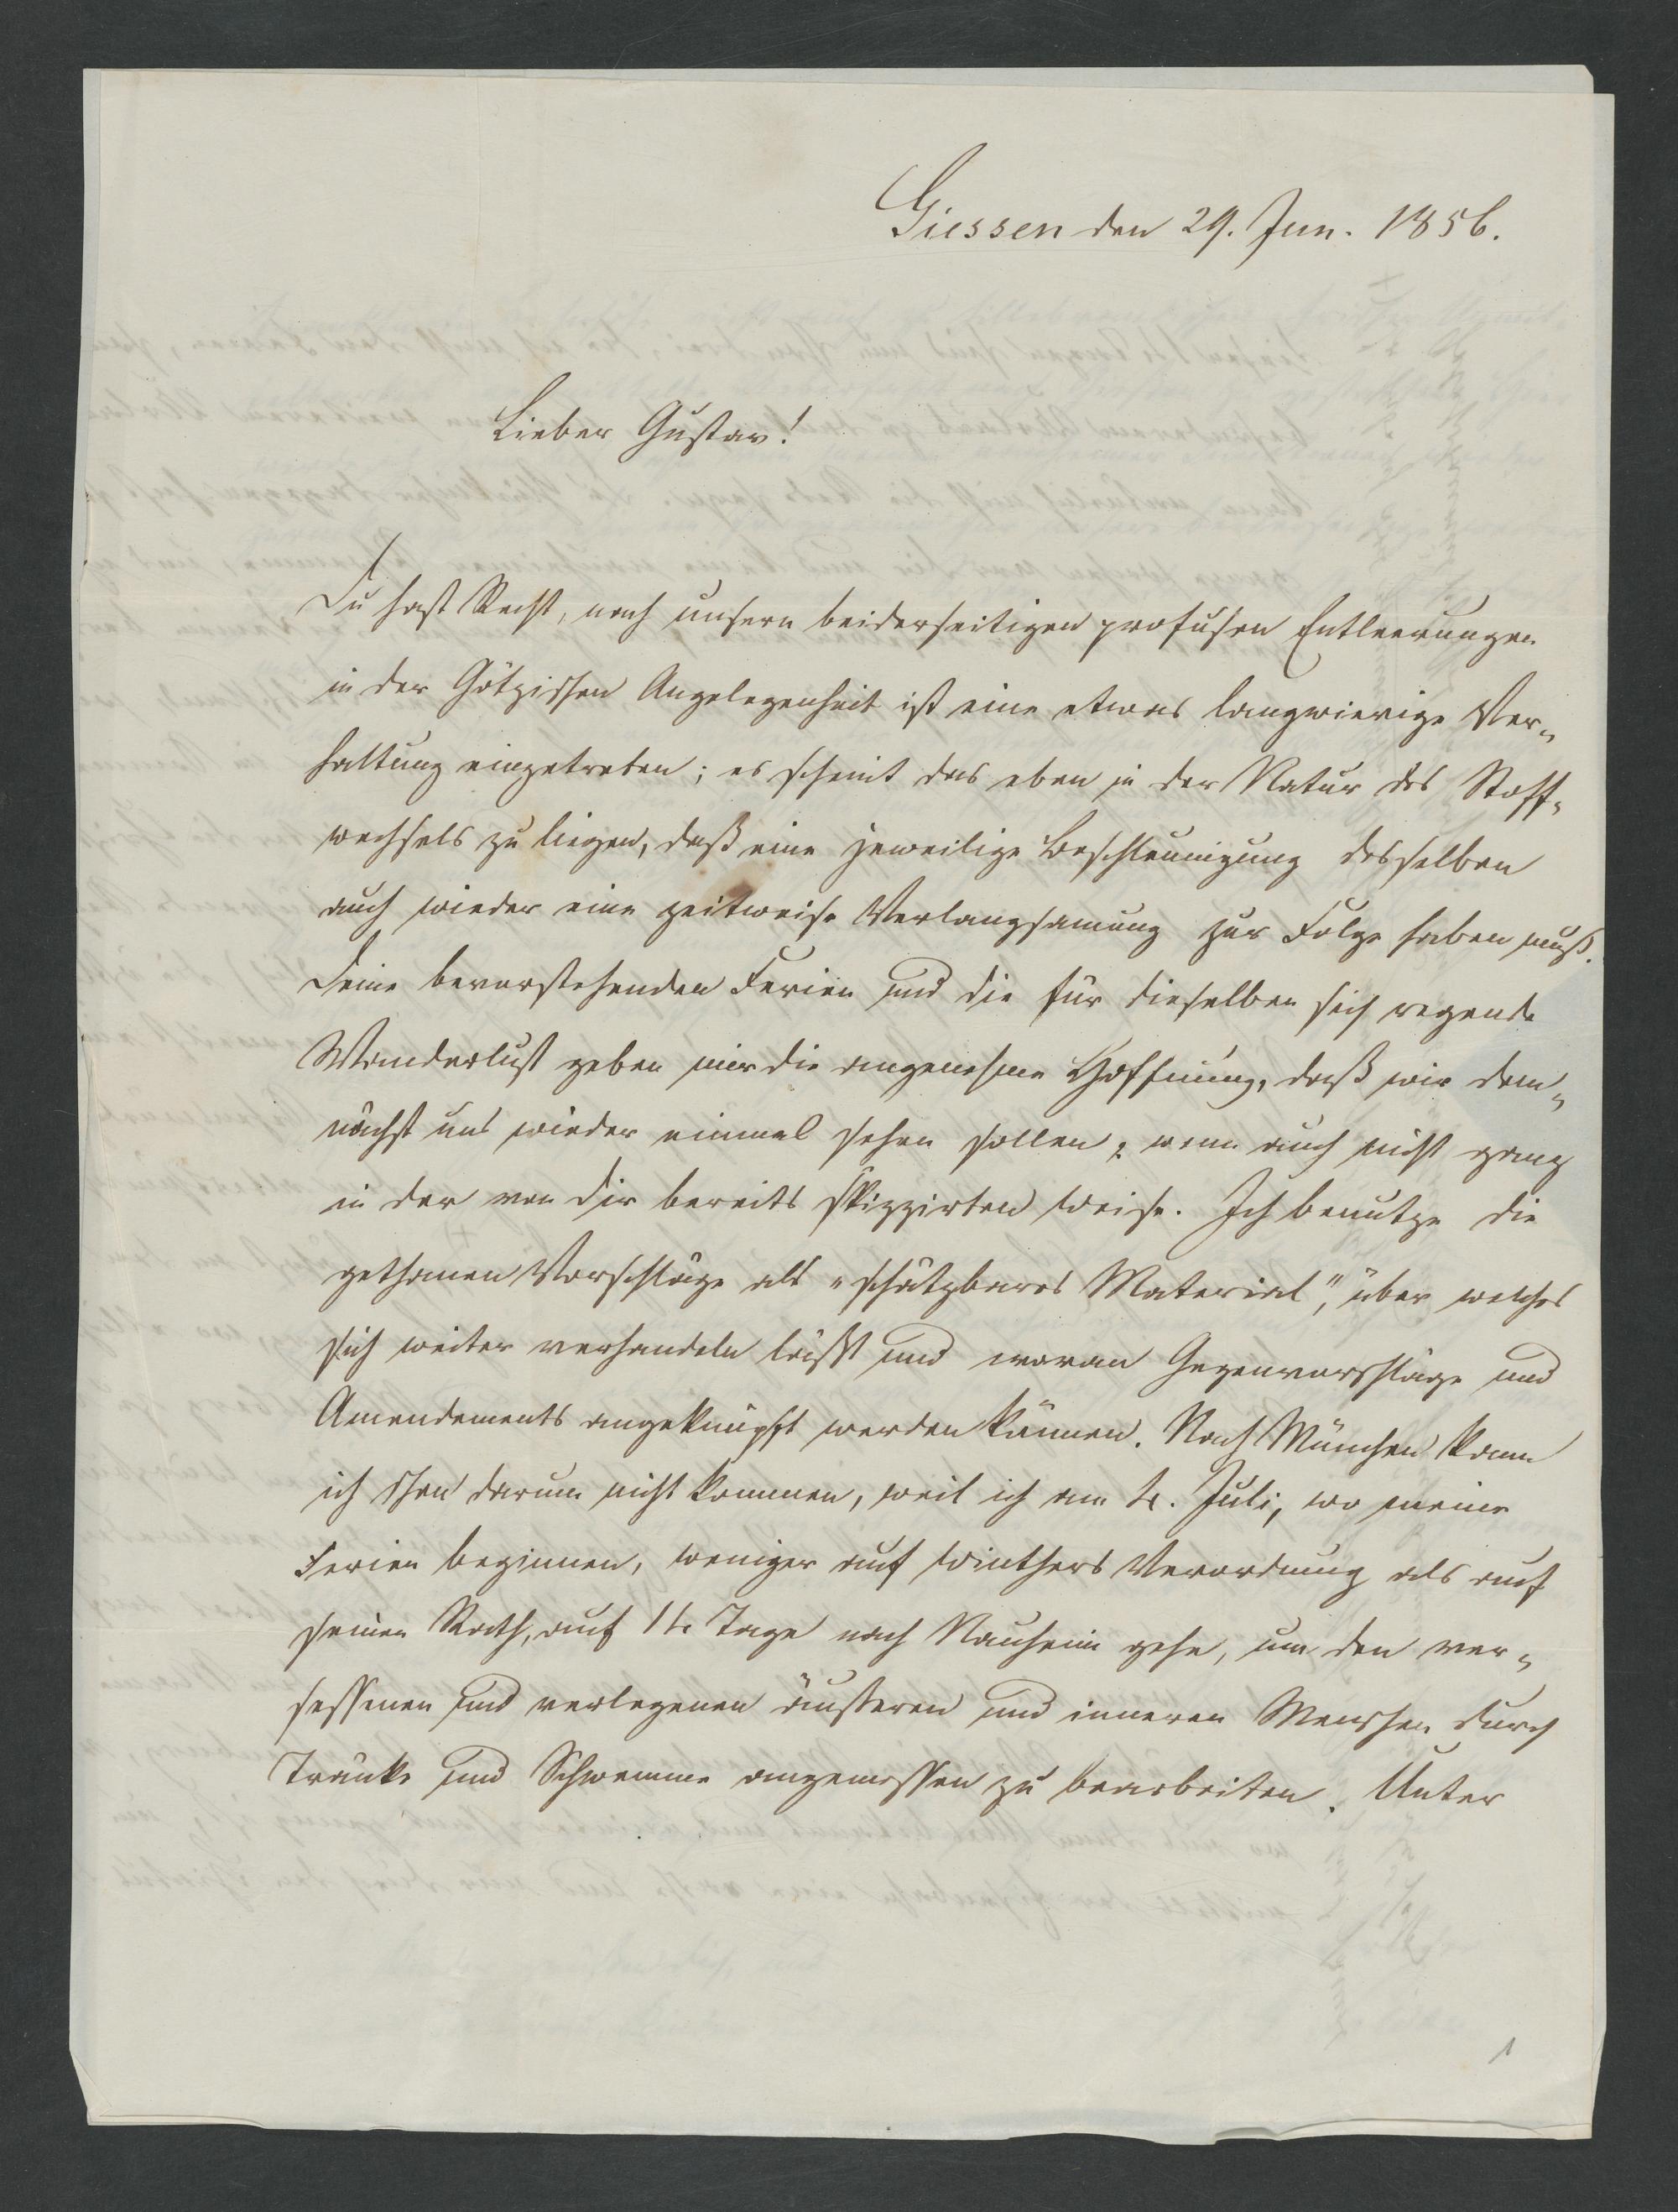 Giessen den 29. Jun. 1856.
Lieber Gustav!
Du hast Recht, nach unsern beiderseitigen profusen Entleerungen
in der Götzischen Angelegenheit ist eine etwas langwierige Ver-
haltung eingetreten; es scheint das eben in der Natur des Stoff-
wechsels zu liegen, daß eine jeweilige Beschleunigung desselben
auch wieder eine zeitweise Verlangsamung zur Folge haben muß.
Deine bevorstehenden Ferien und die für dieselben sich regende
Wanderlust geben mir die angenehme Hoffnung, daß wir dem-
nächst uns wieder einmal sehen sollen, wenn auch nicht ganz
in der von dir bereits skizzirten Weise. Ich benutze die
gethanen Vorschläge als „schätzbares Material", über welches
sich weiter verhandeln läßt und woran Gegenvorschläge und
Amendements angeknüpft werden können. Nach München kann
ich schon darum nicht kommen, weil ich am 4. Juli, wo meine
Ferien beginnen, weniger auf Winthers Verordnung als auf
seinen Rath, auf 14 Tage nach Nauheim gehe, um den ver-
sessenen und verlegenen äusseren und inneren Menschen durch
Tränke und Schwemme angemessen zu bearbeiten. Unter
1